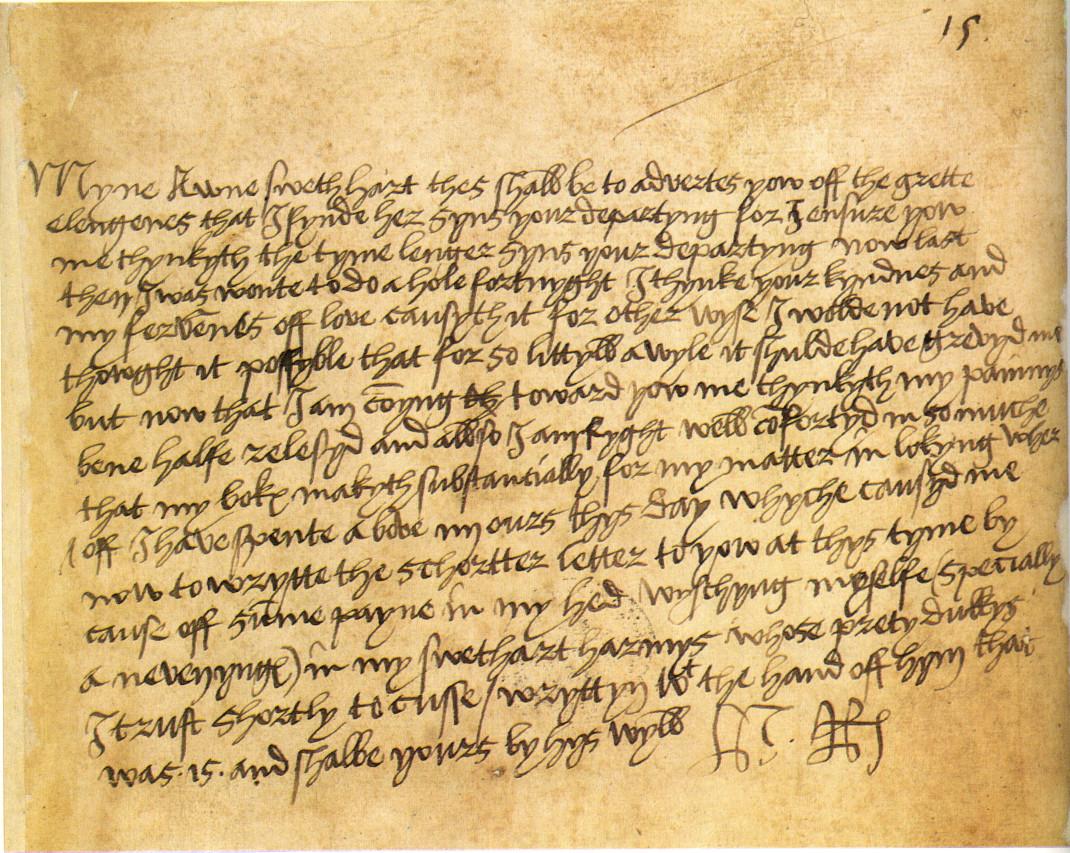 15.
Myne awne swethhart thes shall be to advertes yow off the grette
elengenes that I fynde her syns your departyng for I ensure yow
me thynkyth the tyme lenger syns your departyng now last
then I was wonte to do a hole fortnyght I thynke your kyndnes and
my fervēnes off love causyth it for other wyse I wolde not have
thowght it possyble that for so littyll a wyle it shulde have grevyd me
but now that I am cōyng toward yow me thynkyth my painnys
bene halfe relesyd and allso I am ryght well cōfortyd in so muche
that my boke makyth substantially for my matter in lokyng wher
off I have spente above iiij ours thys day whyche causyd me
now to wrytte the schortter letter to yow at thys tyme by
cause off sūme payne in my hed wyschyng myselfe (specially
a nevenyng) in my swethart harmys whose prety dukkys
I trust shortly to cusse / wryttyn wt the hand off hym that
was .is. and shalbe yours by hys wyll H. Rx